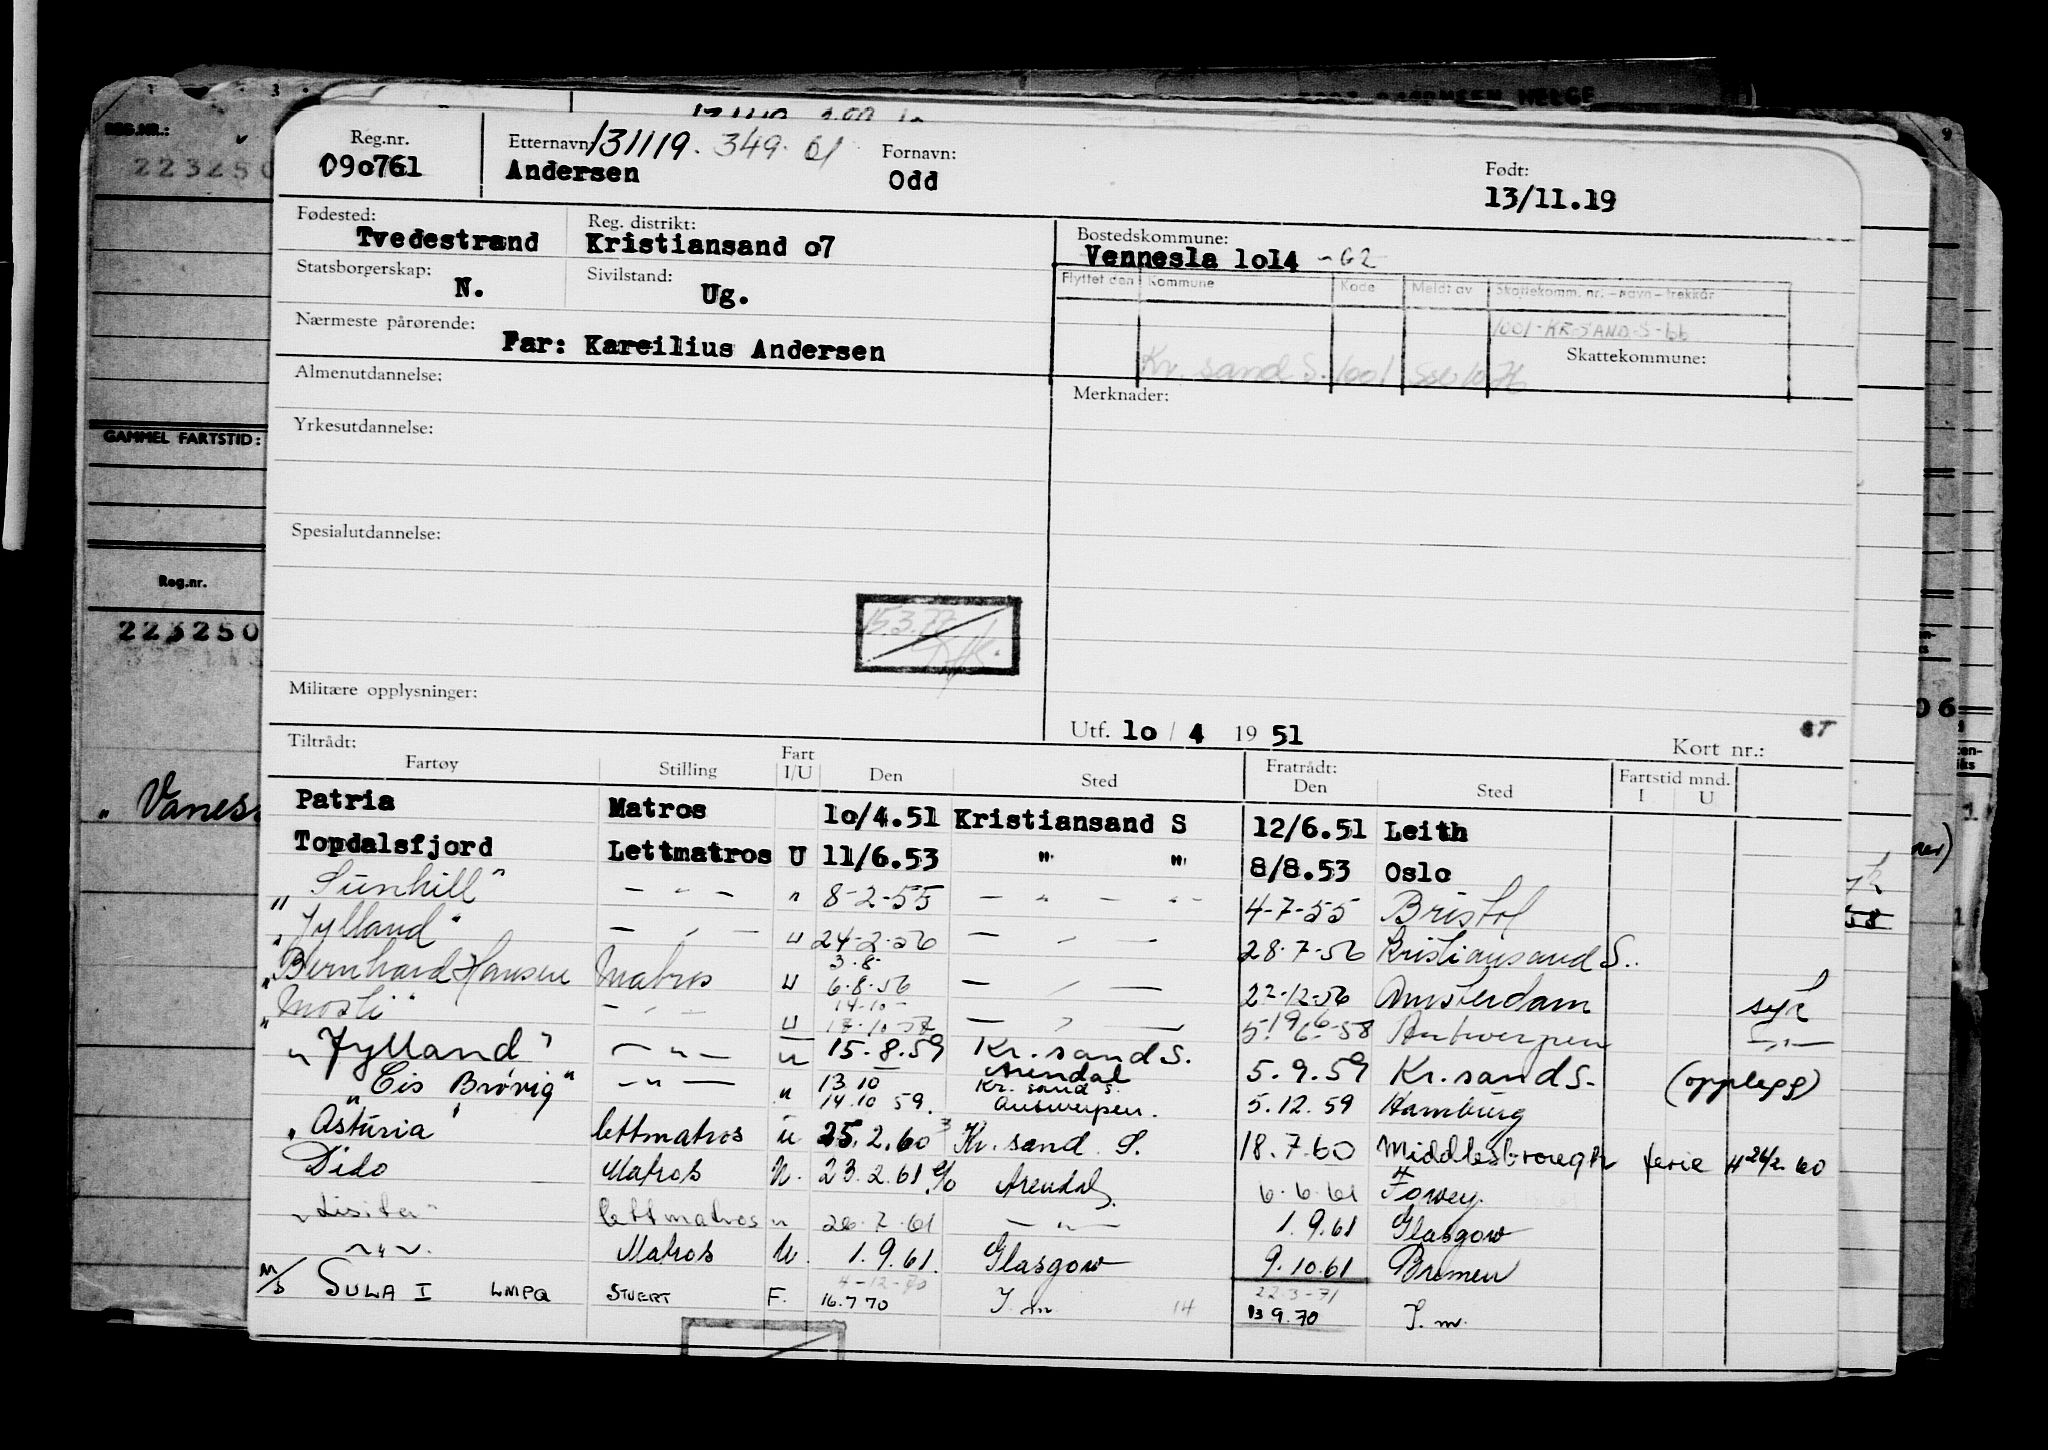 REG.NR.:
223250
GAMMEL FARTSTID:
Reg.nr.
223250
„ Vanes
HELGE
Reg.nr. Etternavn: 131119. 349. 61 Fornavn: Født:
090761 Andersen Odd 13/11.19
Fødested: Reg. distrikt: Bostedskommune:
Tvedestrand Kristiansand 07 Vennesla 1014 - 62
Statsborgerskap: Sivilstand: Flyttet den Kommune Kode Meldt av Skattekomm. nr. - navn - trekkår
N. Ug.
1001-KR.SAND-S-66
Nærmeste pårørende: Skattekommune:
Far: Kareilius Andersen Kr. sand S. 1001
Almenutdannelse: Merknader:
Yrkesutdannelse:
Spesialutdannelse:
15.3.77
Militære opplysninger:
Utf. 10 / 4 19 51
Tiltrådt: Kort nr.:
Fartøy Stilling Fart I/U Den Sted Fratrådt: Den Sted Fartstid mnd. I U
Patria Matros 10/4.51 Kristiansand S 12/6.51 Leith
Topdalsfjord Lettmatros U 11/6.53 " " 8/8.53 Oslo
"Sunhill" — " — " 8-2-55 — " — " — 4-7-55 Bristol
"Jylland" — " — U 24-2-56 — " — 28.7-56 Kristiansand S.
3.8-
"Bernhard Hansen Matros U 6.8.56 — " — 22-12-56 Amsterdam syk
14-10-
"Mosli" — " — U 17-10-57 — " — 5-6-58 Antwerpen — " —
"Jylland" — " — U 15.8.59 Kr. sand S. 5.9.59 Kr. sand S. (opplegg)
13.10 Arendal
Kr. sand S.
"Eis Brøvig" — " — " 14.10 59. Antwerpen. 5.12.59 Hamburg
"Asturia" lettmatros U 25.2.60 Kr. sand S. 18.7.60 Middlesbrough ferie 26/2.60
Dido Matros U. 23.2.61 Arendal. 6.6.61 Fowey.
"Lisita" lettmatros " 26.7.61 — " — 1.9.61 Glasgow
— " —. Matros U. 1.9.61. Glasgow 9.10.61 Bremen
4-12-70 22-3-71
M/S SULA I LMPQ STUERT F. 16.7 70 I. m 14 13 9.70 I. m.